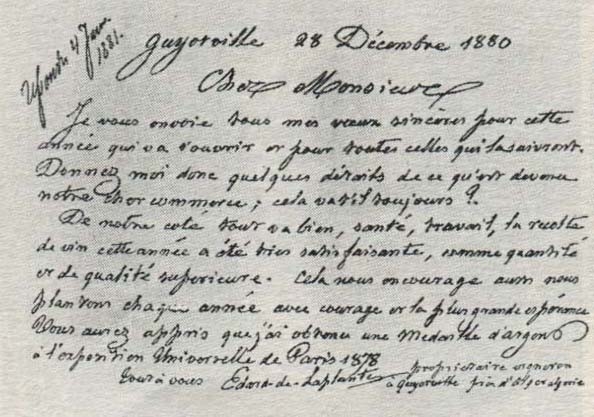 Répondu 4 Janv
1881.
Guyotville 28 Décembre 1880
Cher Monsieur
Je vous envoie tous mes vœux sincères pour cette
année qui va s'ouvrir et pour toutes celles qui la suivront.
Donnez moi donc quelques détails de ce qu'est devenu
notre cher commerce; cela va t'il toujours ?
De notre coté tout va bien, santé, travail, la recolte
de vin cette année a été très satisfaisante, comme quantité
et de qualité superieure. Cela nous encourage aussi nous
plantons chaque année avec courage et la plus grande espérance
Vous aurez appris que j'ai obtenu une Medaille d'argent
à l'exposition Universelle de Paris 1878
Tout à vous Edard-de-Laplante propriétaire vigneron
à Guyotville près d'Alger algerie